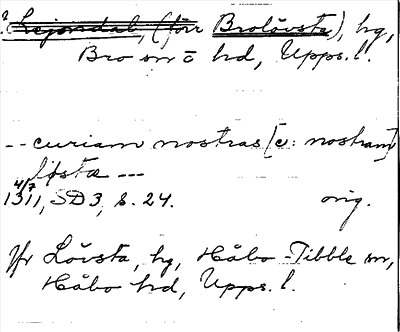 ? Lejondal, (förr Brolövsta), hg,
Bro sn o hd, Upps. l.
-- curiam nostras [o: nostram]
Løsta ---
4/7
1311, SD 3, s. 24. orig.
Jfr Lövsta, hg, Håbo-Tibble sn,
Håbo hd, Upps. l.